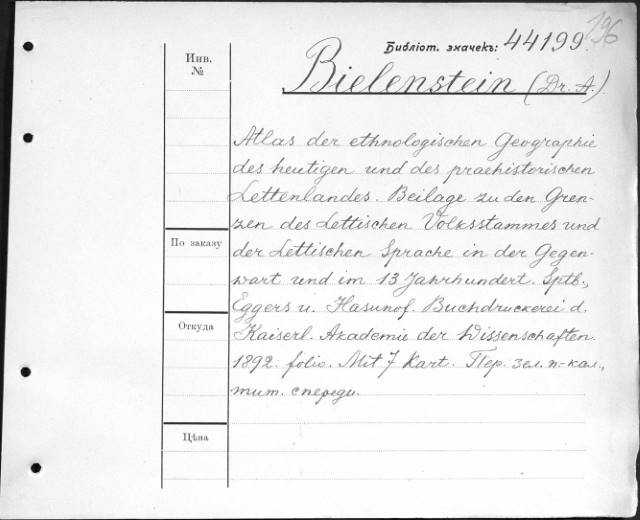 196
Библіот. значекъ: 44199.
Инв.
№
Bielenstein (Dr. A.)
Atlas der ethnologischen Geographie
des heutigen und des praehistorischen
Lettenlandes. Beilage zu den Gren-
zen des Lettischen Volksstammes und
По заказу
der Lettischen Sprache in der Gegen-
wart und im 13 Jahrhundert. Sptb.,
Eggers u. Hasunof. Buchdruckerei d.
Откуда
Kaiserl. Akademie der Wissenschaften.
1892. folio. Mit 7 Kart. Пер. зел. п-кал.,
тит. спереди.
Цѣна